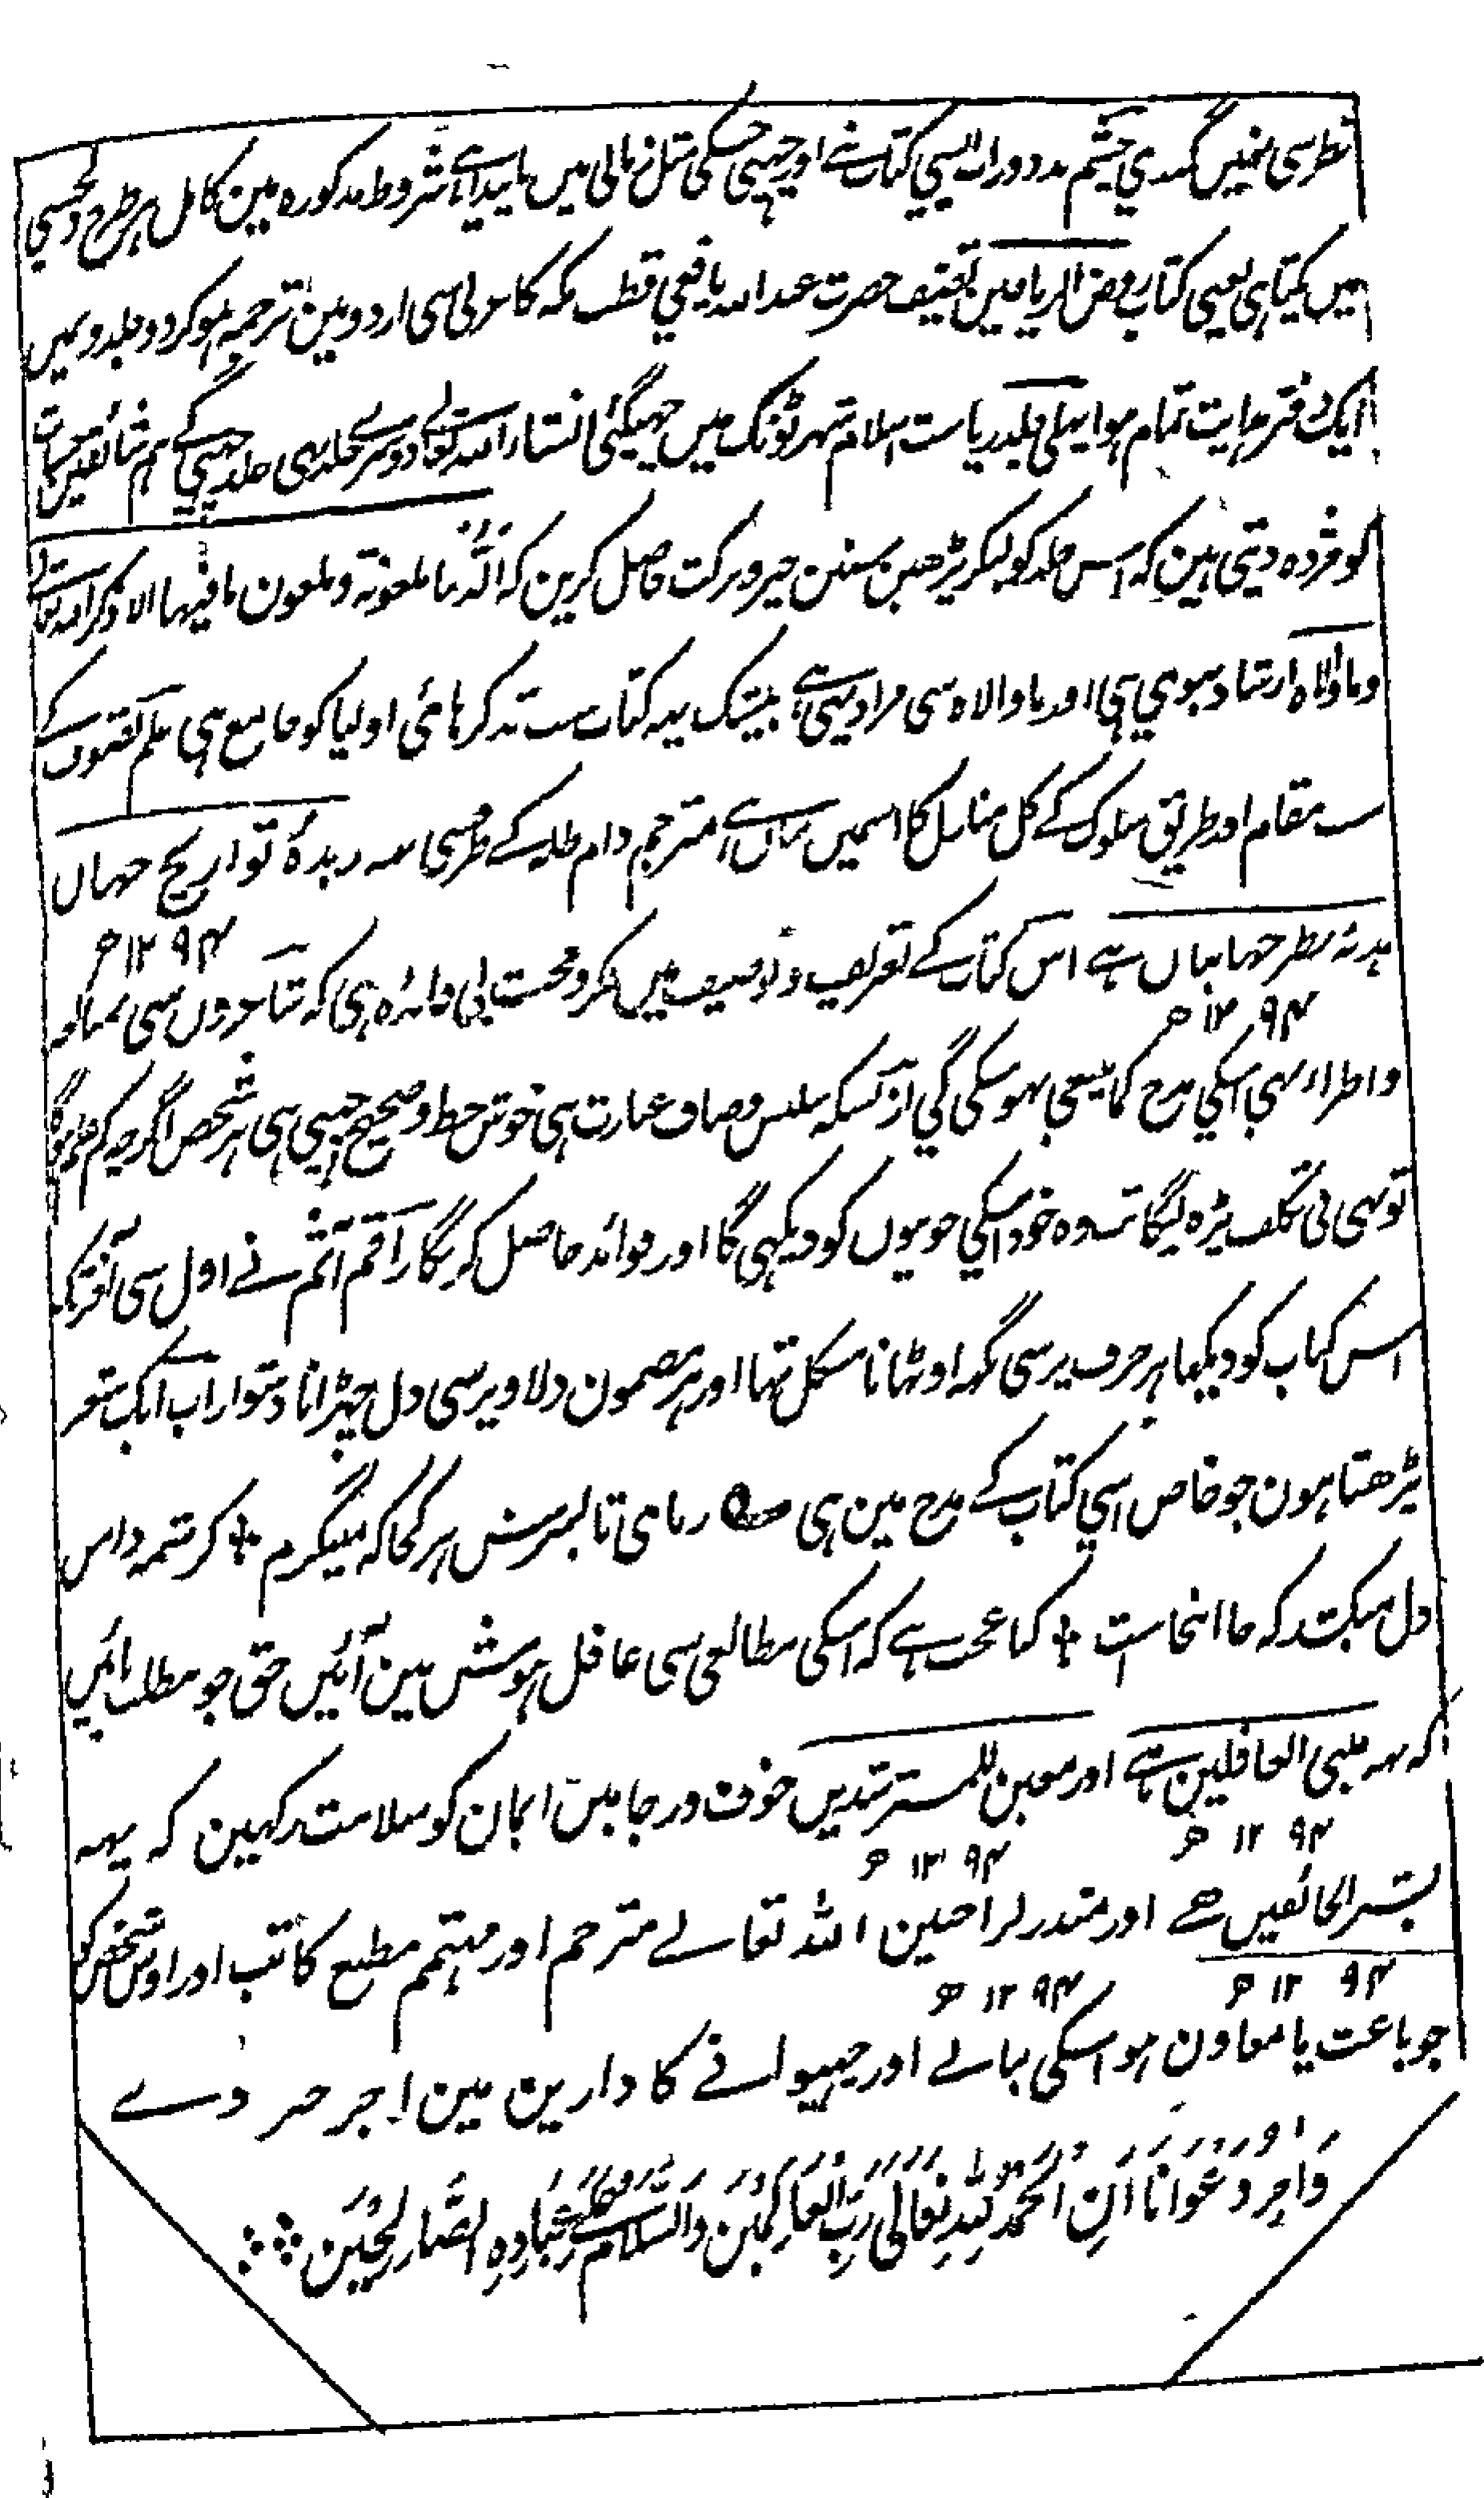 نظرسی نہیں گذری چشم بد دور اب ایسی کتاب نے اور چھپی جسکی مثل خالی میں ناپیدا ہے شروط مذکورہ مین کامل ہر طرح دلچسپی
میں یکتا ہی یعنی کتاب روض الریاحین تصنیف حضرت عبد اللہ یافعی قطب مکہ کا عربی سی اردو مین ترجمہ ہو کر دو جلدو نمیں
ایک دفتر ہدایت تمام ہوا پہلی جلد ریاست اسلام شہر ٹونک میں چھپ گئی انشاء اللہ تعالے دوسرے جلد بہی جلد چھپی گے ہم شائقین
کو مژدہ دیتی ہین کہ اس جلد کو لیکر پڑھین سنین خیر و برکت حاصل کرین کہ الدنیا ملعونۃ و ملعون ما فیہا الا ذکر اللہ تعالے
وما والاہ ارشاد نبوی ہی اور ما والاہ سی مراد یہی ہے بیشک یہہ کتاب ست تذکرہائی اولیا کو جامع ہی علم تصوف کے
سب مقام اور طریق سلوک کے کل منازل کا اسمیں بیان ہے مترجم دام ظلہ کے طرف سی یہہ زبدۂ تواریخ جہاں
۱۲۹۴ھ
ہدیۂ نظر جہانیاں ہے اس کتاب کے تعریف و توصیف میں فکر و محنت بی فائدہ ہی کہ شاعروں سی مبالغہ
۱۲۹۴ھ
و اطراء بہی اسکی مدح کا نہیں ہو سکی گی از بسکہ سلیس و صاف عبارت ہی خوش خط و صحیح چھپی ہی ہر شخص اگرچہ کم علم ہوگا
تو بہی بی تکلف پڑہ لیگا تب وہ خود اسکی خوبیوں کو دیکہی گا اور فوائد حاصل کریگا راقم آثم نے اول سی آخر تک
اس کتاب کو دیکہا ہر حرف پر سی نگہ اوٹہانا مشکل تہا اور ہر مضمون دلاویز سی دل چہڑانا دشوار اب ایک شعر
پڑھتا ہون جو خاص اسی کتاب کے مدح مین ہی ز پای تا بسرش ہر کجا کہ مینگرم * کرشمہ دامن
دل میکشد کہ جا اینجاست * کیا عجب ہے کہ اسکی مطالعی سی غافل ہوش مین آئیں حق جو مطلب پائیں
کہ یہہ منبی الغافلین ہے اور معین للمسترشدین خوف و رجا مین ایمان کو سلامت رکہین کہ یہہ
۱۲۹۴ھ ۱۲۹۴ھ
بشر الخائفین ہے اور منذر لراجین اللہ تعالے مترجم اور مہتمم مطبع کاتب اور اوس شخص کو
۱۲۹۴ھ ۱۲۹۴ھ
جو باعث یا معاون ہو اسکی بنانے اور چھپوانے کا دارین مین اجر خیر دے
وَاٰخِرُ دَعْوَانَا اَنِ الْحَمْدُ لِلّٰہِ تَعَالٰی رَبِّ الْعَالَمِیْنَ وَالسَّلَامُ عَلٰی عِبَادِہِ الصَّالِحِیْنَ